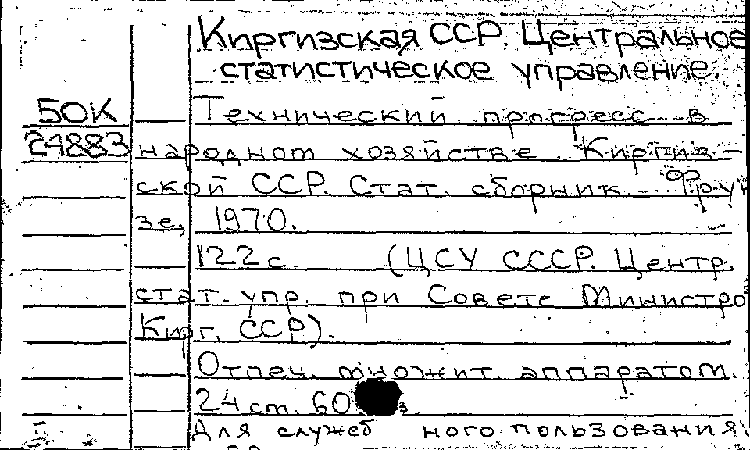 Киргизская ССР. Центральное
статистическое управление.
50К Технический прогресс в
24883 народном хозяйстве Киргиз-
ской ССР. Стат. сборник. Фрун
зе, 1970.
122 с (ЦСУ СССР. Центр.
стат. упр. при Совете Министро
Кирг. ССР).
Отпеч. множит. аппаратом.
24 см. 60
Для служеб ного пользования